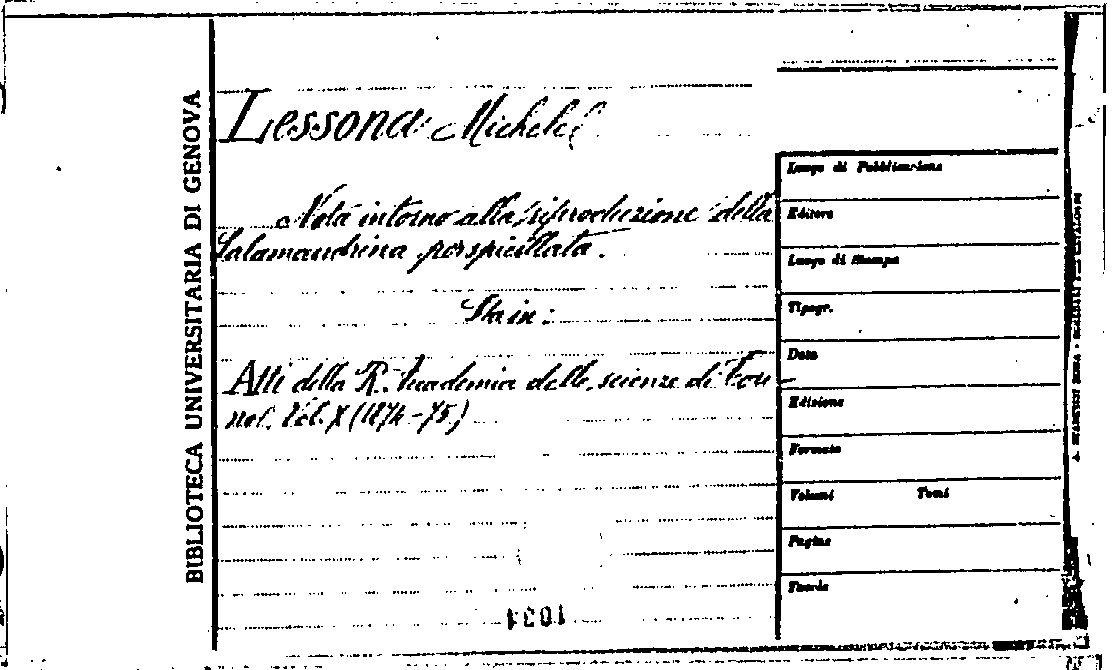 BIBLIOTECA UNIVERSITARIA DI GENOVA
Lessona Michele
Nota intorno alla riproduzione della
Salamandrina perspicillata.
Sta in:
Atti della R. Accademia delle scienze di Tori-
no. Vol. X (1874-75)
Luogo di Pubblicazione
Editore
Luogo di Stampa
Tipogr.
Data
Edizione
Formato
Volumi Tomi
Pagine
Tavole